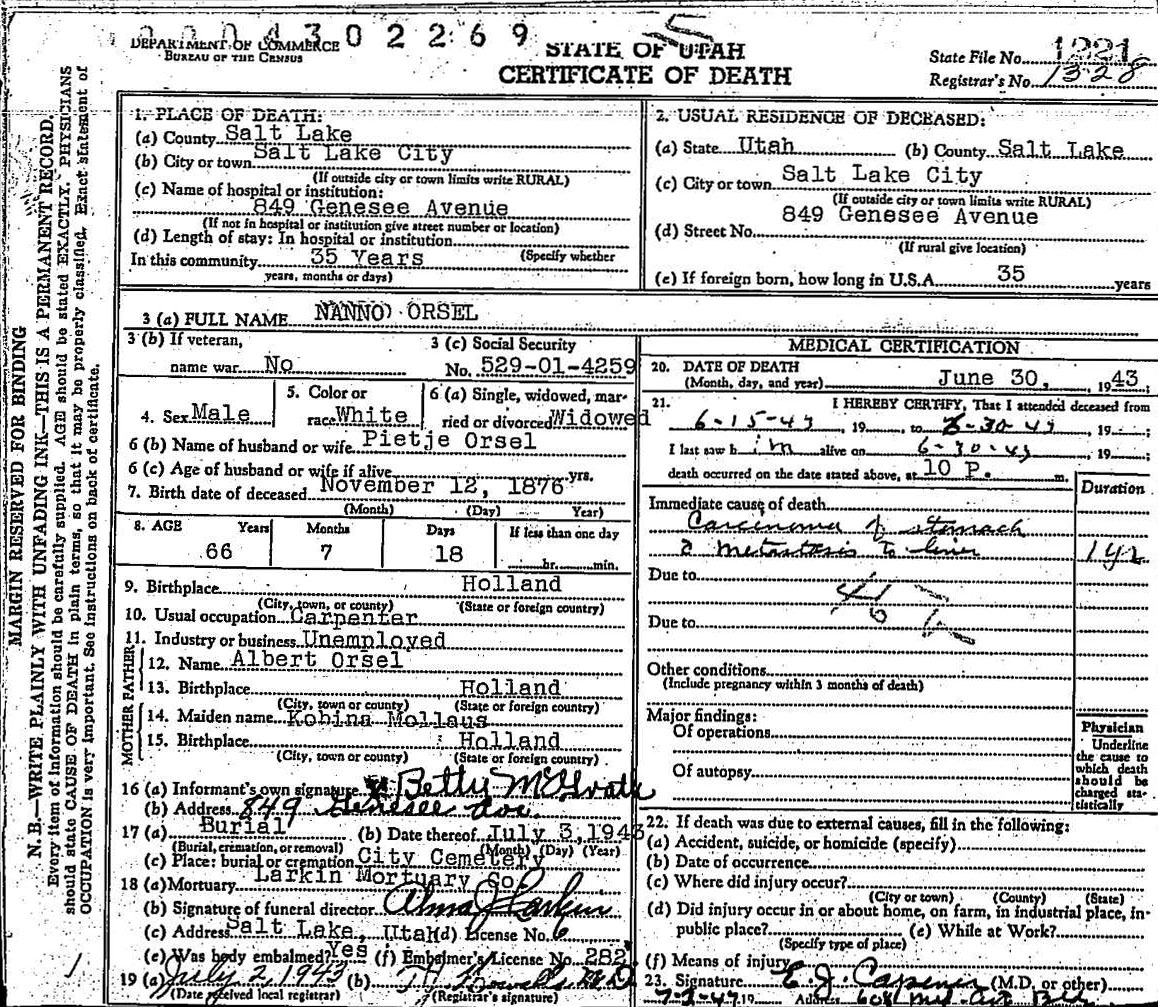 0004302269 5
DEPARTMENT OF COMMERCE
BUREAU OF THE CENSUS
STATE OF UTAH
CERTIFICATE OF DEATH
State File No. 1221
Registrar's No. 1328
MARGIN RESERVED FOR BINDING
N. B.—WRITE PLAINLY WITH UNFADING INK—THIS IS A PERMANENT RECORD.
Every item of information should be carefully supplied. AGE should be stated EXACTLY. PHYSICIANS
should state CAUSE OF DEATH in plain terms, so that it may be properly classified. Exact statement of
OCCUPATION is very important. See instructions on back of certificate.
1. PLACE OF DEATH:
(a) County Salt Lake
(b) City or town Salt Lake City
(If outside city or town limits write RURAL)
(c) Name of hospital or institution:
849 Genesee Avenue
(If not in hospital or institution give street number or location)
(d) Length of stay: In hospital or institution
In this community 35 Years (Specify whether
years, months or days)
2. USUAL RESIDENCE OF DECEASED:
(a) State Utah (b) County Salt Lake
(c) City or town Salt Lake City
(If outside city or town limits write RURAL)
849 Genesee Avenue
(d) Street No.
(If rural give location)
(e) If foreign born, how long in U.S.A. 35 years
3 (a) FULL NAME NANNO ORSEL
3 (b) If veteran,
name war No
3 (c) Social Security
No. 529-01-4259
4. Sex Male
5. Color or
race White
6 (a) Single, widowed, mar-
ried or divorced Widowed
6 (b) Name of husband or wife Pietje Orsel
6 (c) Age of husband or wife if alive yrs.
7. Birth date of deceased November 12, 1876
(Month) (Day) Year)
8. AGE Years Months Days If less than one day
66 7 18 hr. min.
9. Birthplace Holland
(City, town, or county) (State or foreign country)
10. Usual occupation Carpenter
11. Industry or business Unemployed
FATHER
12. Name Albert Orsel
13. Birthplace Holland
(City, town or county) (State or foreign country)
MOTHER
14. Maiden name Kobina Mollaus
15. Birthplace Holland
(City, town, or county) (State or foreign country)
16 (a) Informant's own signature x Betty McGrath
(b) Address 849 Genesee Ave.
17 (a) Burial (b) Date thereof July 3, 1943
(Burial, cremation, or removal) (Month) (Day) (Year)
(c) Place: burial or cremation City Cemetery
18 (a) Mortuary Larkin Mortuary Co.
(b) Signature of funeral director Alma J Larkin
(c) Address Salt Lake, Utah (d) License No. 6
(e) Was body embalmed? Yes (f) Embalmer's License No. 282
19 (a) July 2, 1943 (b)
(Date received local registrar) (Registrar's signature)
MEDICAL CERTIFICATION
20. DATE OF DEATH
(Month, day, and year) June 30, 1943
21. I HEREBY CERTIFY, That I attended deceased from
6-15-43, 19 to 6-30-43, 19 ;
I last saw h im alive on 6-30-43, 19 ;
death occurred on the date stated above, at 10 P. m.
Duration
Immediate cause of death
Carcinoma of stomach
c metastasis to liver 1 yr
Due to
46
Due to
Other conditions
(Include pregnancy within 3 months of death)
Major findings:
Of operations
Of autopsy
Physician
Underline
the cause to
which death
should be
charged sta-
tistically
22. If death was due to external causes, fill in the following:
(a) Accident, suicide, or homicide (specify)
(b) Date of occurrence
(c) Where did injury occur?
(City or town) (County) (State)
(d) Did injury occur in or about home, on farm, in industrial place, in-
public place? (e) While at Work?
(Specify type of place)
(f) Means of injury
23. Signature E. J. Capener (M.D. or other)
7-2-43 19 Address 608 Med. Arts Bldg